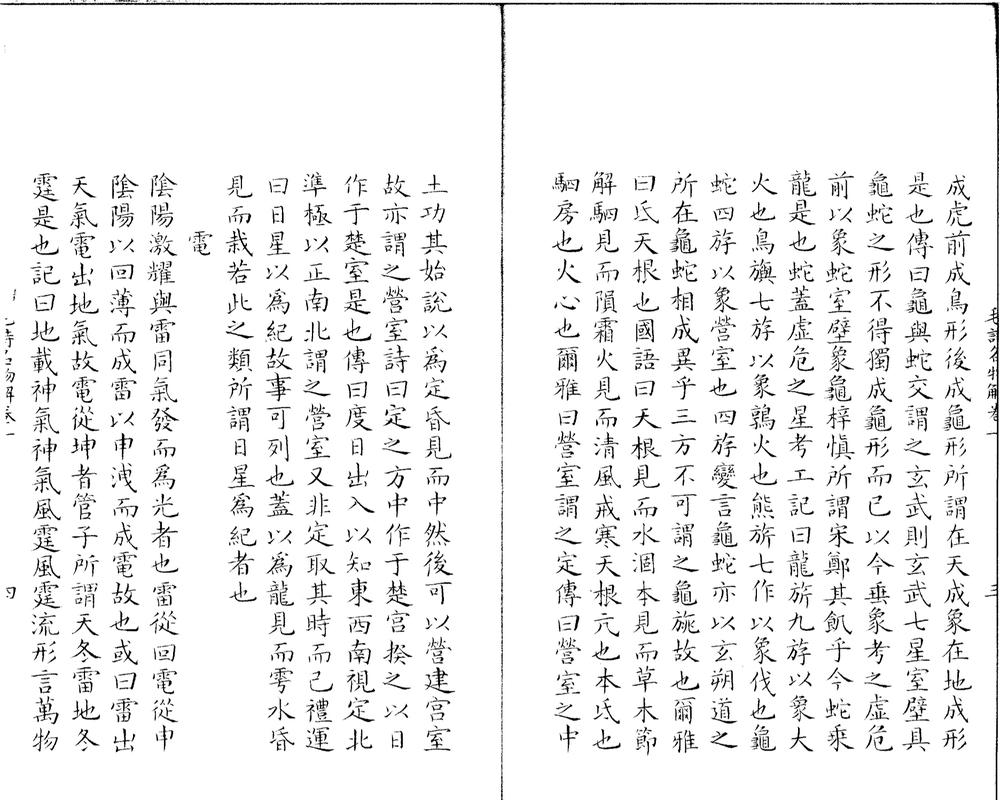 成虎前成鳥形後成龜形所謂在天成象在地成形
是也傳曰龜與蛇交謂之玄武則玄武七星室壁具
龜蛇之形不得獨成龜形而已以今垂象考之虛危
前以象蛇室壁象龜梓慎所謂宋鄭其飢乎今蛇乘
龍是也蛇蓋虛危之星考工記曰龍旂九斿以象大
火也鳥旟七斿以象鶉火也熊旂七作以象伐也龜
蛇四斿以象營室也四斿變言龜蛇亦以玄朔道之
所在龜蛇相成異乎三方不可謂之龜旐故也爾雅
曰氐天根也國語曰天根見而水涸本見而草木節
解駟見而隕霜火見而清風戒寒天根亢也本氐也
駟房也火心也爾雅曰營室謂之定傳曰營室之中
土功其始說以為定昏見而中然後可以營建宮室
故亦謂之營室詩曰定之方中作于楚宮揆之以日
作于楚室是也傳曰度日出入以知東西南視定北
準極以正南北謂之營室又非定取其時而已禮運
曰日星以為紀故事可列也蓋以為龍見而雩水昏
見而栽若此之類所謂日星為紀者也
電
陰陽激耀與雷同氣發而為光者也雷從回電從申
陰陽以回薄而成雷以申洩而成電故也或曰雷出
天氣電出地氣故電從坤者管子所謂天冬雷地冬
霆是也記曰地載神氣神氣風霆風霆流形言萬物
四